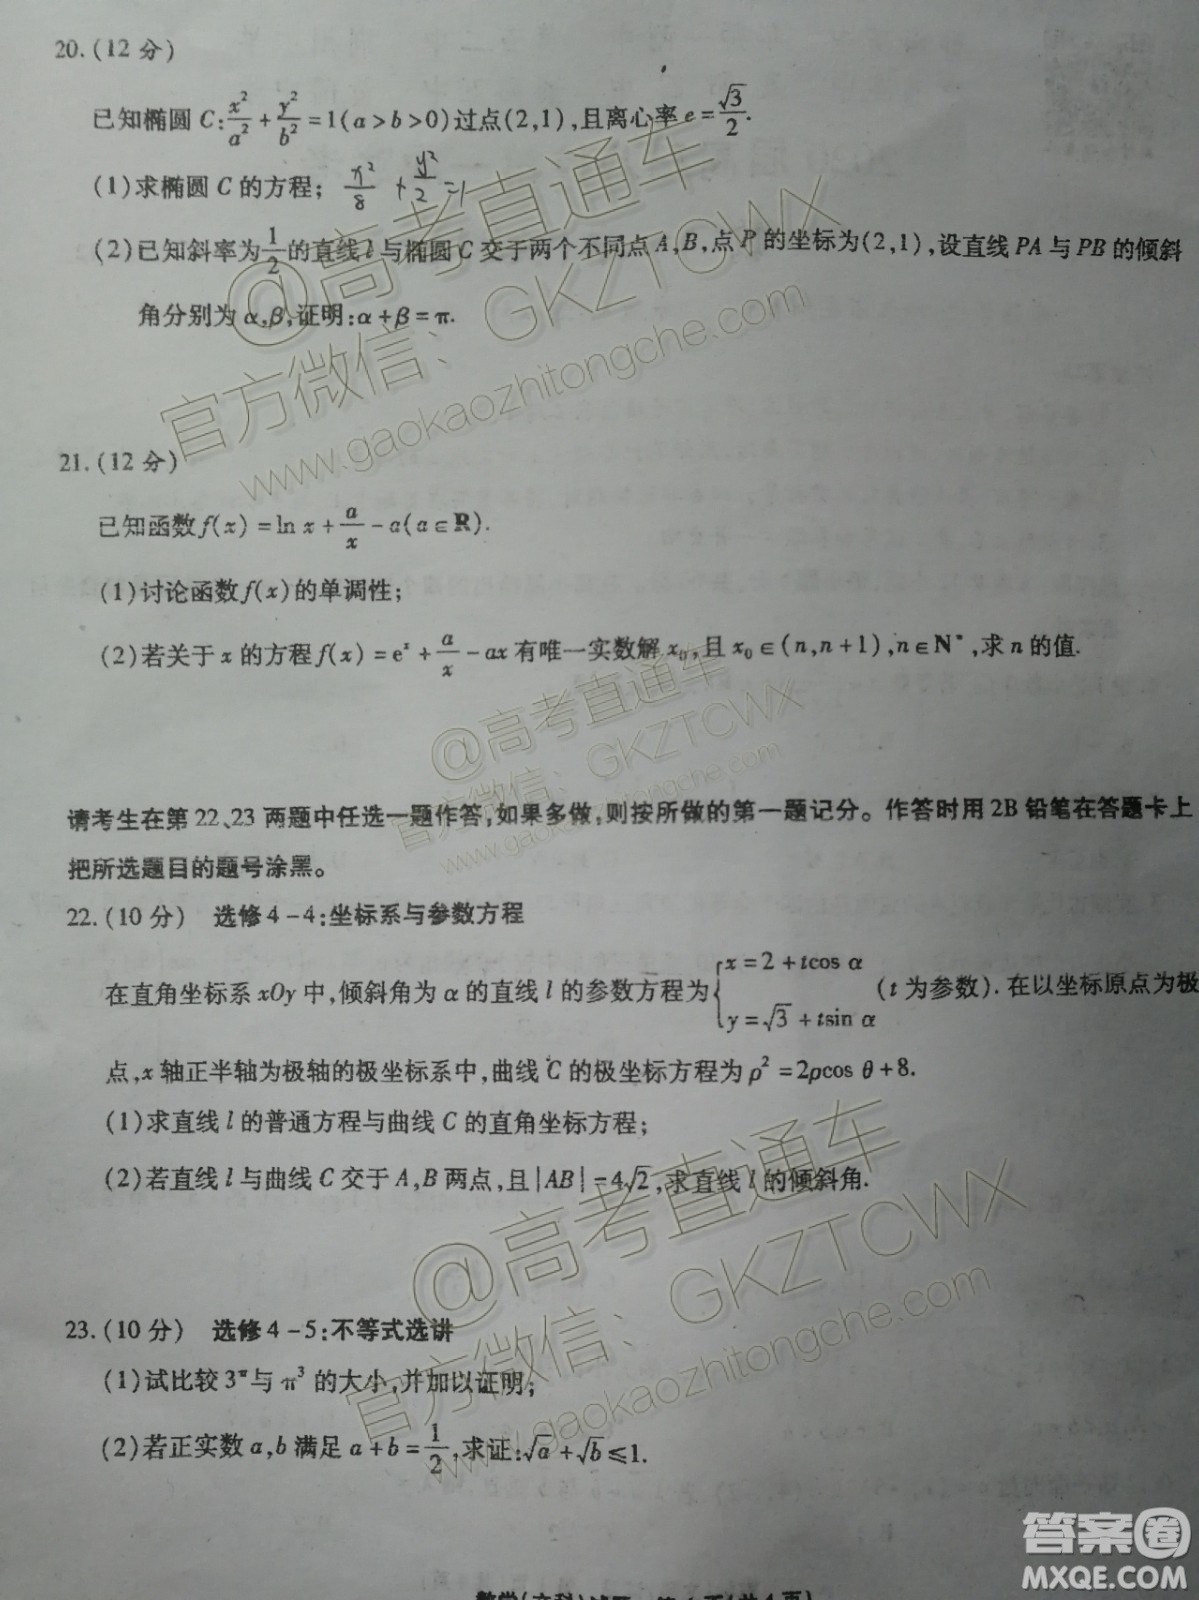 20.(12分)
已知椭圆C:x²/a²+y²/b²=1(a>b>0)过点(2,1),且离心率e=√3/2.
(1)求椭圆C的方程; x²/8+y²/2=1
(2)已知斜率为1/2的直线l与椭圆C交于两个不同点A,B,点P的坐标为(2,1),设直线PA与PB的倾斜
角分别为α,β,证明:α+β=π.
21.(12分)
已知函数f(x)=ln x+a/x-a(a∈R).
(1)讨论函数f(x)的单调性;
(2)若关于x的方程f(x)=eˣ+a/x-ax有唯一实数解x₀,且x₀∈(n,n+1),n∈N*,求n的值.
@高考直通车
官方微信:GKZTCWX
www.gaokaozhitongche.com
请考生在第22、23两题中任选一题作答,如果多做,则按所做的第一题记分。作答时用2B铅笔在答题卡上
把所选题目的题号涂黑。
22.(10分) 选修4-4:坐标系与参数方程
在直角坐标系xOy中,倾斜角为α的直线l的参数方程为{x=2+tcos α y=√3+tsin α (t为参数).在以坐标原点为极
点,x轴正半轴为极轴的极坐标系中,曲线C的极坐标方程为ρ²=2ρcos θ+8.
(1)求直线l的普通方程与曲线C的直角坐标方程;
(2)若直线l与曲线C交于A,B两点,且|AB|=4√2,求直线l的倾斜角.
23.(10分) 选修4-5:不等式选讲
(1)试比较3^π与π³的大小,并加以证明;
(2)若正实数a,b满足a+b=1/2,求证:√a+√b≤1.
@高考直通车
官方微信:GKZTCWX
www.gaokaozhitongche.com
@高考直通车
官方微信:GKZTCWX
www.gaokaozhitongche.com
答案圈
MXQE.COM